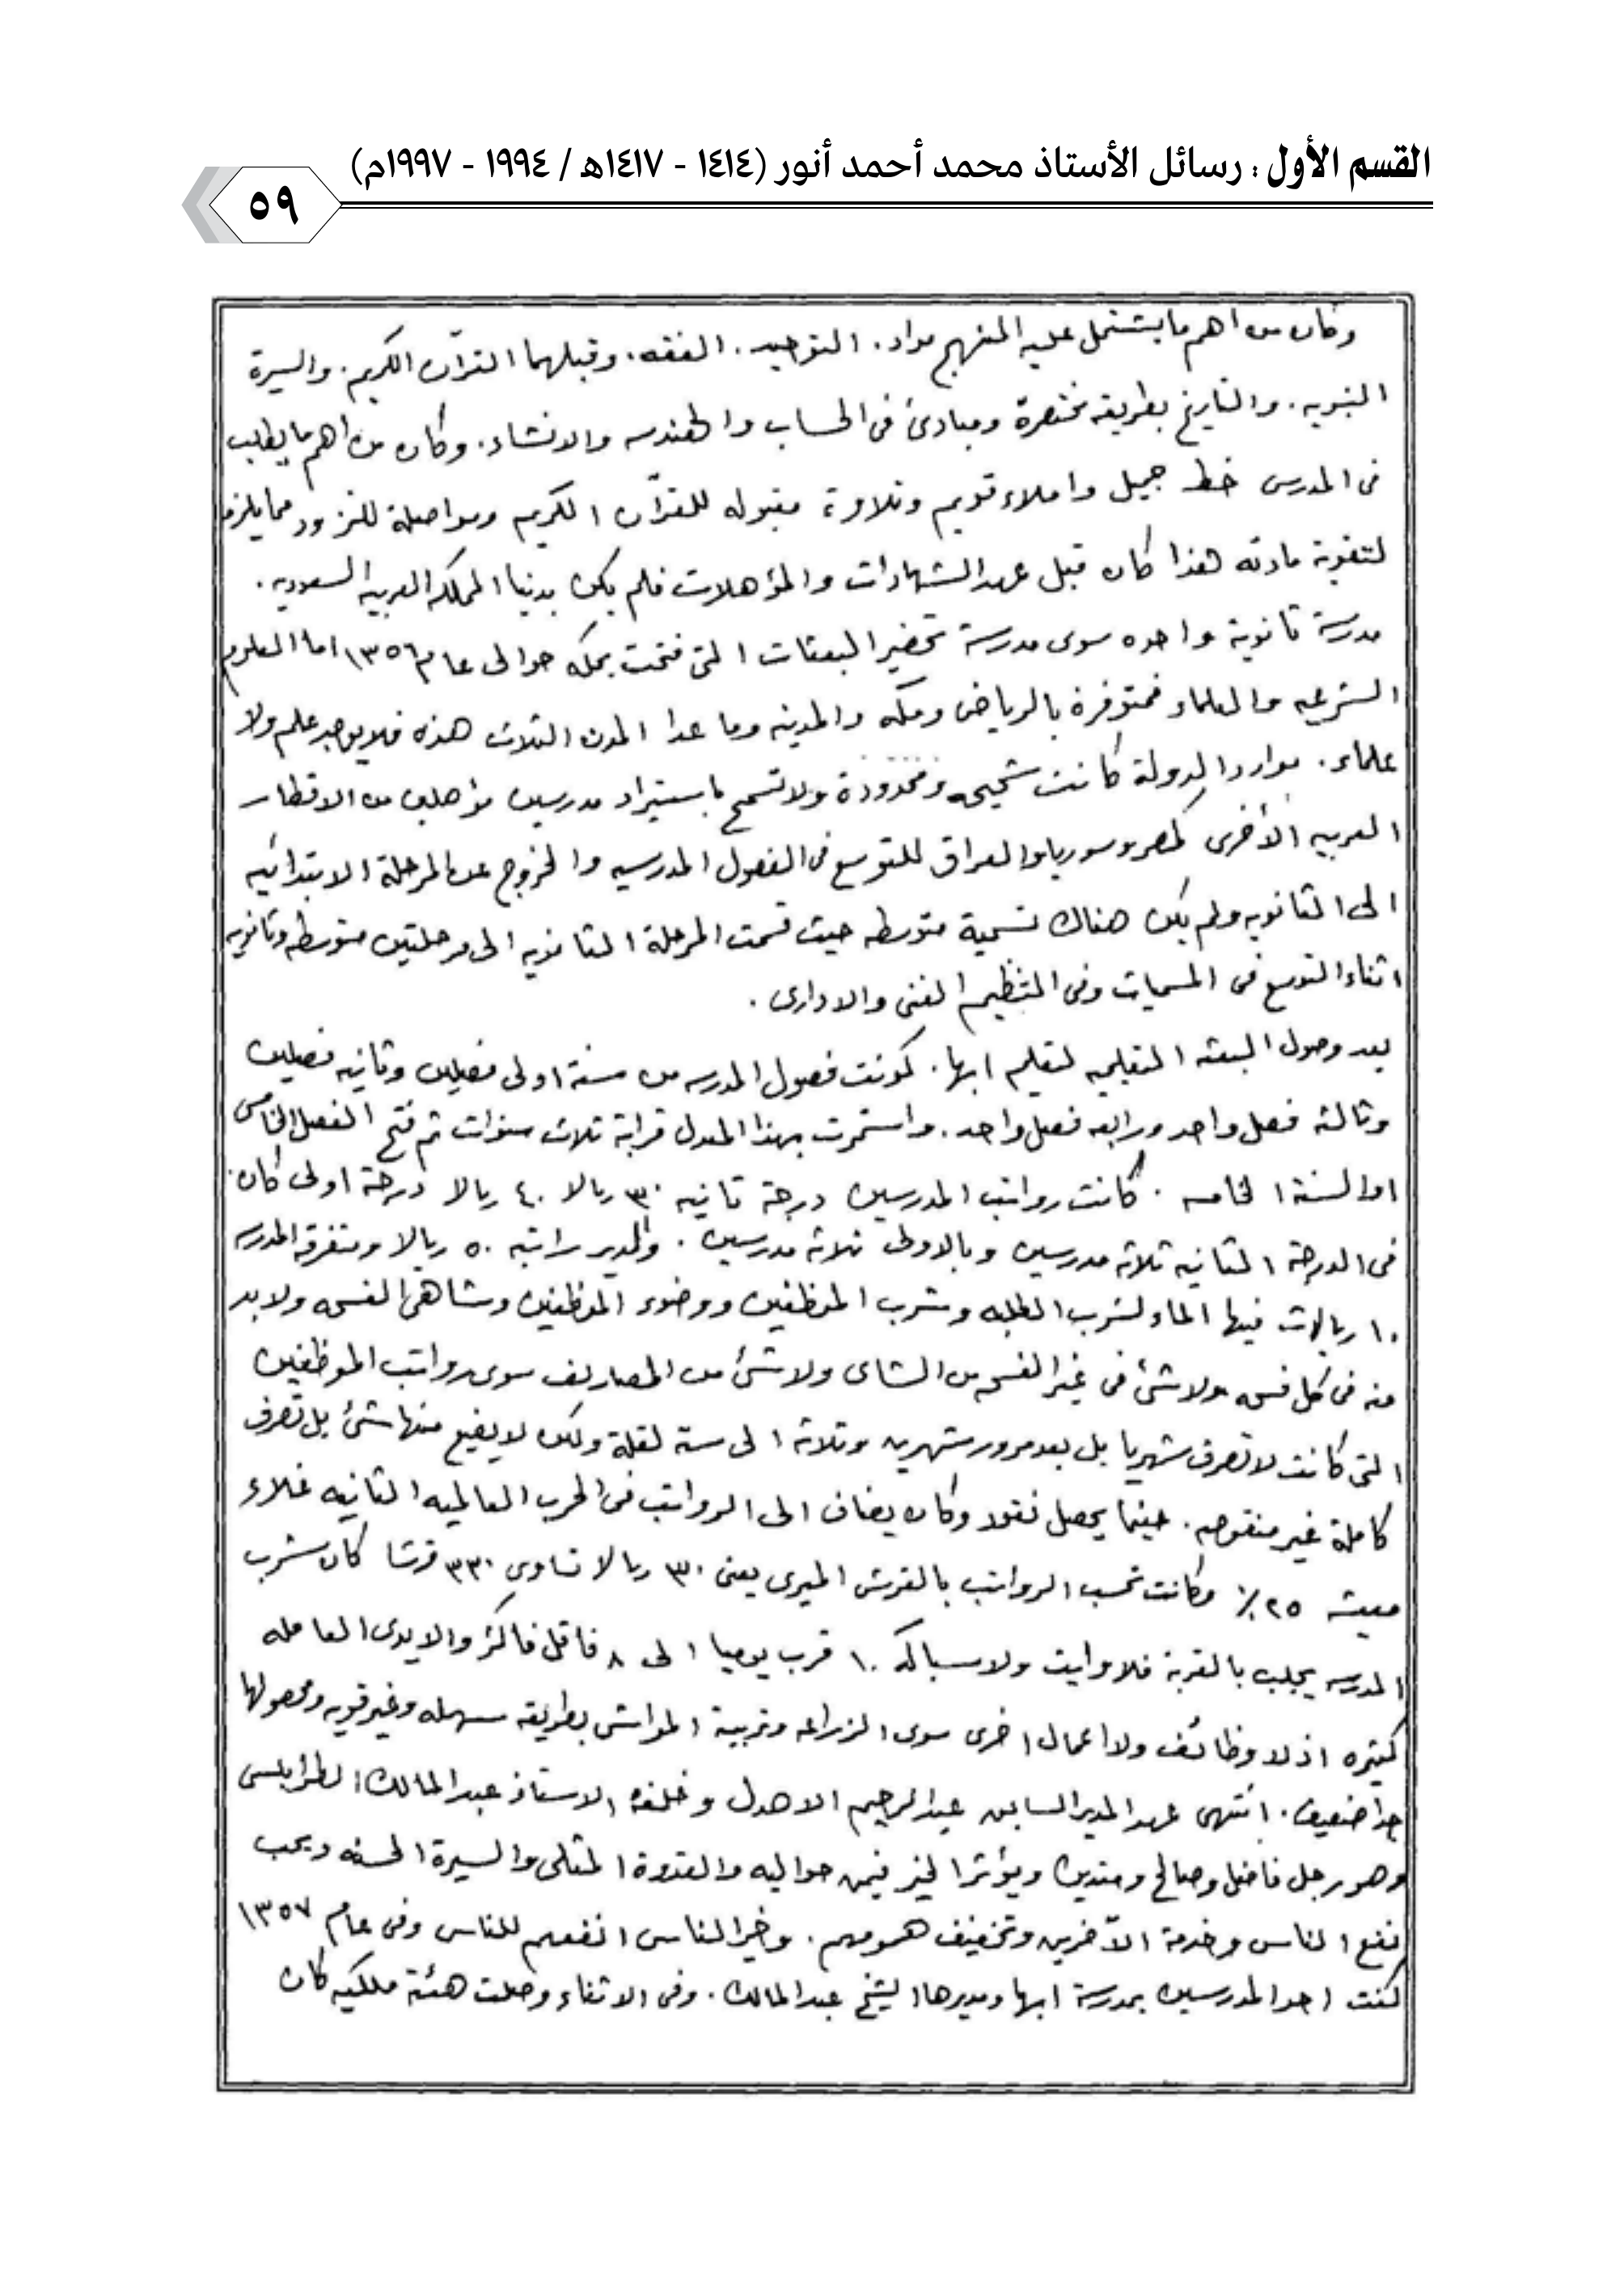 القسم الأول : رسائل الأستاذ محمد أحمد أنور (١٤١٤ - ١٤١٧هـ / ١٩٩٤ - ١٩٩٧م)
٥٩
وكان من اهم ما يشتمل عليه المنهج مواد. التوحيد. الفقه. وقبلهما القرآن الكريم. والسيرة
النبويه. والتاريخ بطريقه مختصرة ومبادئ فى الحساب والهندسه والانشاء. وكان من اهم ما يطلب
فى المدرس خط جميل واملاء قويم وتلاوة مقبوله للقرآن الكريم ومواصلة للتزود مما يلزم
لتقوية مادته هذا كان قبل عهد الشهادات والمؤهلات فلم يكن بدنيا المملكه العربيه السعوديه.
مدرسة ثانوية واحده سوى مدرسة تحضير البعثات التى فتحت بمكه حوالى عام ١٣٥٦ اما العلوم
الشرعيه والعلماء فمتوفرة بالرياض ومكه والمدينه وما عدا المدن الثلاث هذه فلا يوجد علم ولا
علماء. موارد الدولة كانت شحيحه ومحدودة ولا تسمح باستيراد مدرسين مؤهلين من الاقطار
العربيه الأخرى كمصر وسوريا والعراق للتوسع فى الفصول المدرسيه والخروج عن المرحلة الابتدائيه
الى الثانويه ولم يكن هناك تسمية متوسطه حيث قسمت المرحلة الثانويه الى مرحلتين متوسطه وثانويه
اثناء التوسع فى المسميات وفى التنظيم الفنى والادارى.
بعد وصول البعثه التعليميه لتعليم ابها. كونت فصول المدرسه من سنة اولى فصلين وثانيه فصلين
وثالثه فصل واحد ورابعه فصل واحد. واستمرت بهذا المعدل قرابة ثلاث سنوات ثم فتح الفصل الخامس
او السنة الخامسه. كانت رواتب المدرسين درجة ثانيه ٣٠ ريالا ٤٠ ريالا درجة اولى كان
فى الدرجة الثانيه ثلاثه مدرسين وبالاولى ثلاثه مدرسين. والمدير راتبه ٥٠ ريالا ومتفرقه المدرسه
١٠ ريالات فيها الماء لشرب الطلبه وشرب الموظفين ووضوء الموظفين وشاهى الفسحه ولابد
منه فى كل فسحه ولا شئ فى غير الفسحه من الشاى ولا شئ من المصاريف سوى رواتب الموظفين
التى كانت لا تصرف شهريا بل بعد مرور شهرين وثلاثه الى ستة لقلة ولكن لا يضيع منها شئ بل تصرف
كاملة غير منقوصه. حينما يحصل نقود وكان يضاف الى الرواتب فى الحرب العالميه الثانيه غلاء
معيشه ٢٥٪ وكانت تحسب الرواتب بالقرش الميرى يعنى ٣٠ ريالا تساوى ٣٣٠ قرشا كان شرب
المدرسه يجلب بالقربة فلا وايت ولا سباكه ١٠ قرب يوميا الى ٨ فاقل فاكثر والايدى العامله
كثيره اذ لا وظائف ولا اعمال اخرى سوى الزراعه وتربية المواشى بطريقه سهله وغير قويه ومحصولها
جدا ضعيف. انتهى عهد المدير السابق عبدالرحيم الاهدل وخلفه الاستاذ عبدالمالك الطرابلسى
وهو رجل فاضل وصالح ومتدين ويؤثر الخير فيمن حواليه والقدوة المثلى والسيرة الحسنه ويحب
نفع الناس وخدمة الآخرين وتخفيف همومهم. وخير الناس انفعهم للناس وفى عام ١٣٥٧
كنت احد المدرسين بمدرسة ابها ومديرها الشيخ عبدالمالك. وفى الاثناء وصلت هئة ملكيه كان